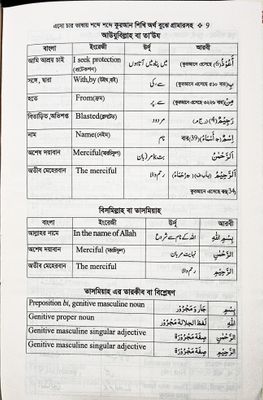 এসো চার ভাষায় শব্দে শব্দে কুরআন শিখি অর্থ বুঝে গ্রামারসহ ❖ 9
আউযুবিল্লাহ বা তা'উয
বাংলা ইংরেজী উর্দূ আরবী
আমি আশ্রয় চাই I seek protection (প্রটেকশন) میں پناہ میں آتا ہوں اَعُوْذُ (কুরআনে এসেছে 6)
সঙ্গে, দ্বারা With,by (উইথ,বাই) کی، سے
হতে From(ফ্রম) سے
বিতাড়িত,অভিশপ্ত Blasted(ব্লাস্টেড) مردود رَجِيْمٌ
নাম Name(নেইম) نام اِسْمٌ
অশেষ দয়াবান Merciful(মরসিফুল) بہت مہربان اَلرَّحْمٰنُ
অতীব মেহেরবান The merciful رحم والا اَلرَّحِيْمُ
কুরআনে এসেছে বার 34
বিসমিল্লাহ বা তাসমিয়াহ
বাংলা ইংরেজী উর্দূ আরবী
আল্লাহর নামে In the name of Allah اللہ کے نام سے شروع بِسْمِ اللهِ
অশেষ দয়াবান Merciful (মরসিফুল) نہایت مہربان الرَّحْمٰنِ
অতীব মেহেরবান The merciful رحم والا الرَّحِيْمِ
তাসমিয়াহ এর তারকীব বা বিশ্লেষণ
Preposition bi, genitive masculine noun جَار وَ مَجْرُوْر بِسْمِ
Genitive proper noun لَفْظُ الْجَلَالَة مَجْرُوْر اللهِ
Genitive masculine singular adjective صِفَة مَجْرُوْرَة الرَّحْمٰنِ
Genitive masculine singular adjective صِفَة مَجْرُوْرَة الرَّحِيْمِ